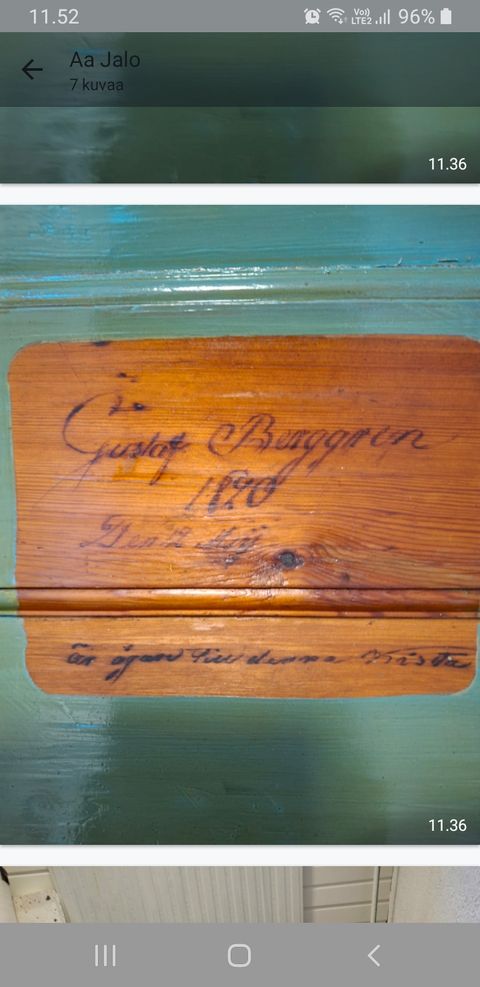 11.52
Vo))
LTE2
96%
Aa Jalo
7 kuvaa
11.36
Gustaf Berggren
1870
Den 12 Maij
är ägare till denna Kista
11.36